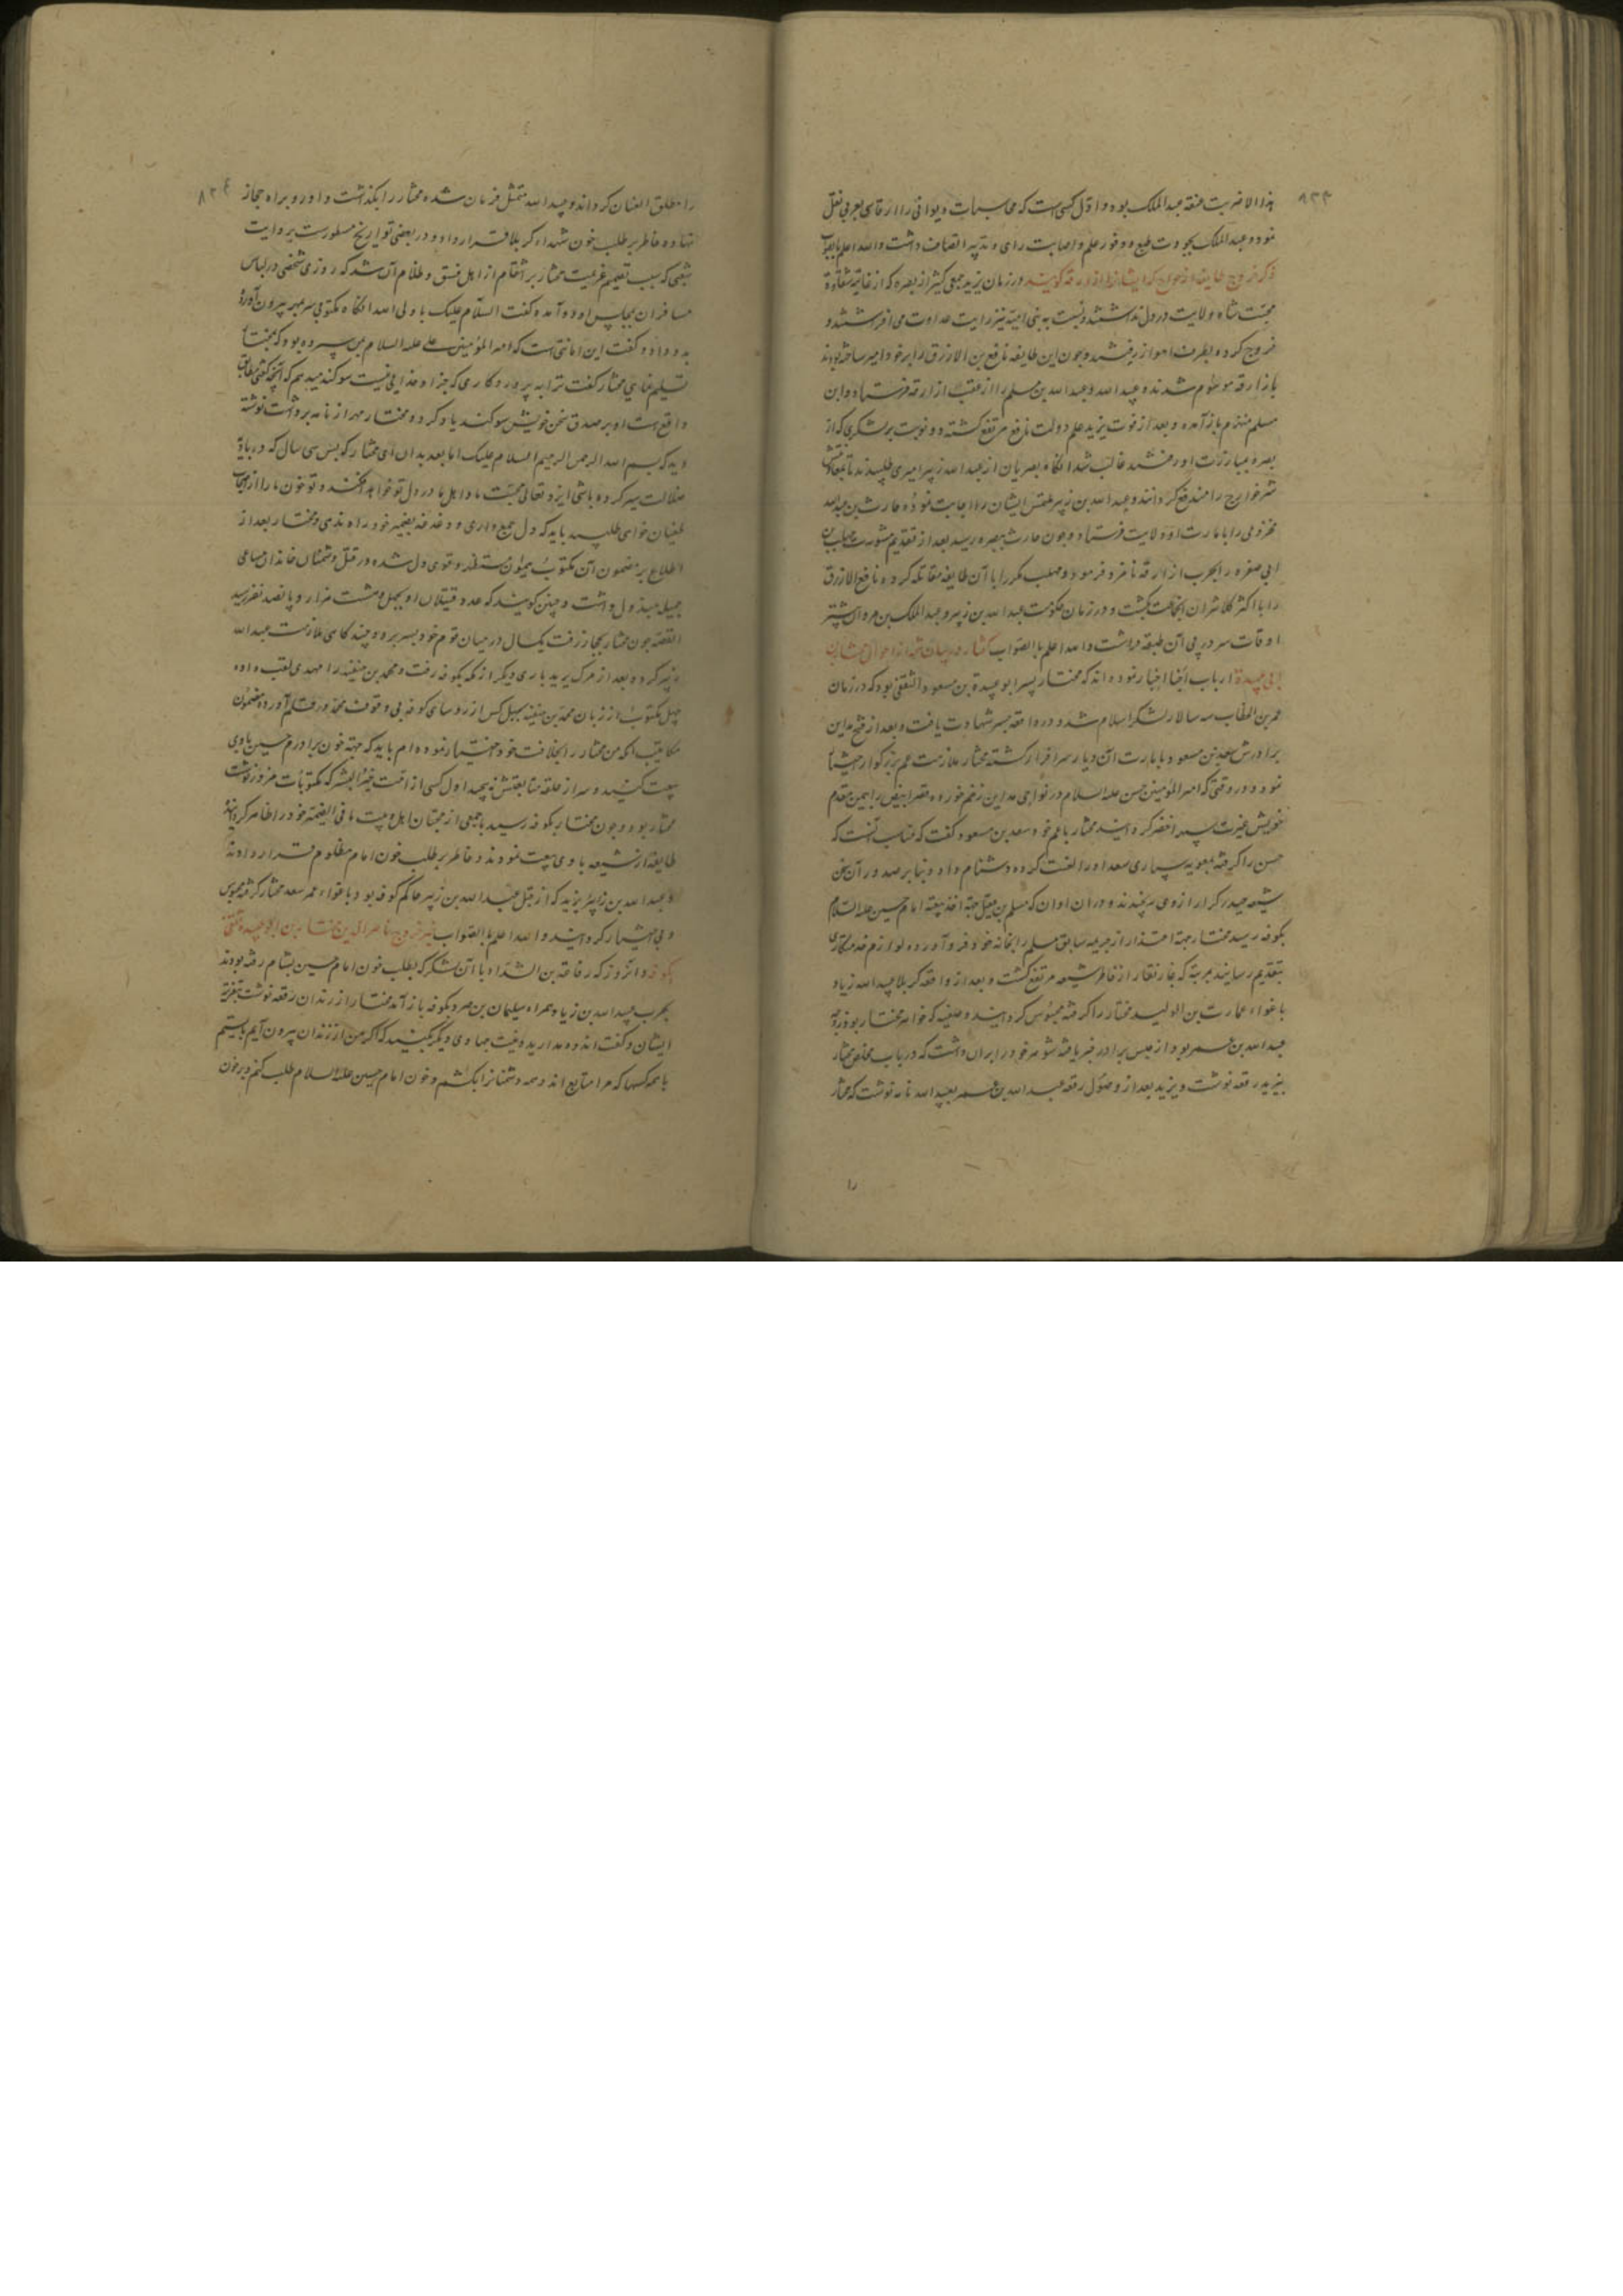 ۸۳۳
هذا الاضربت صنعه عبدالملک بوده و اول کسی است که محاسبات دیوانی را از فارسی بعربی نقل
نمود و عبدالملک بجودت طبع و وفور علم و اصابت رای و تدبیر اتصاف داشت والله اعلم بالصواب
ذکر خروج طایفه از خوارج که ایشان را ازارقه گویند در زمان یزید جمعی کثیر از بصره که از غایة شقاوة
محبت شاه ولایت در دل نداشتند و نسبت به بنی امیه نیز رایت عداوت می افراشتند و
خروج کرده بطرف اهواز رفتند و چون این طایفه نافع بن الازرق را بر خود امیر ساخته بودند
بازارقه موسوم شدند و عبید الله عبدالله بن مسلم را از عقب ازارقه فرستاد و ابن
مسلم منهزم باز آمده و بعد از فوت یزید علم دولت نافع مرتفع کشته دو نوبت بر لشکری که از
بصره بمبارزت او رفتند غالب شد انکاه بصریان از عبدالله زبیر امیری طلبیدند تا بمعاونتش
شر خوارج را مندفع کردانند و عبدالله بن زبیر ملتمس ایشان را اجابت نموده حارث بن عبدالله
مخزومی را بامارت او ولایت فرستاد و چون حارث ببصره رسید بعد از تقدیم مشورت مهلب بن
ابی صفره را بحرب ازارقه نامزد فرمود و مهلب مکررا با آن طایفه مقاتله کرده نافع الازرق
را با اکثر کلانتران انجماعت بکشت و در زمان حکومت عبدالله بن زبیر و عبدالملک بن مروان بیشتر
اوقات سر در پی آن طبقه داشت والله اعلم بالصواب گفتار در بیان شمه از احوال مختار بن
ابی عبیدة ارباب اخبار اخبار نموده اند که مختار پسر ابو عبیدة بن مسعود الثقفی بود که در زمان
عمر بن الخطاب سپه سالار لشکر اسلام شد و در واقعه جسر شهادت یافت و بعد از فتح مداین
برادرش سعد بن مسعود بامارت آن دیار سرافراز کشته مختار ملازمت عم بزرکوار اختیار
نمود و در وقتی که امیرالمؤمنین حسن علیه السلام در نواحی مداین زخم خورده قصر ابیض را بیمن مقدم
خویش غیرت سپهر اخضر کردانید مختار با عم خود سعد بن مسعود کفت که مناسب آنست که
حسن را کرفته بمعویه سپاری سعد او را لعنت کرده دشنام داد و بنابر صدور آن سخن
شیعه حیدر کرار از وی برنجیدند و در ان اوان که مسلم بن عقیل جهة اخذ بیعت امام حسین علیه السلام
بکوفه رسید مختار جهة اعتذار از جریمه سابق مسلم را بخانه خود فرو آورده لوازم خدمتکاری
بتقدیم رسانید بمرتبه که غبار نقار از خاطر شیعه مرتفع کشت و بعد از واقعه کربلا عبیدالله زیاد
باغواء عمارت بن الولید مختار را کرفته محبوس کردانید و صفیه که خواهر مختار بود زوجه
عبدالله بن عمر بود از حبس برادر خبر یافته شوهر خود را بر ان داشت که در باب مخلص مختار
بیزید رقعه نوشت و یزید بعد از وصول رقعه عبدالله بن عمر بعبیدالله نامه نوشت که مختار
را
۸۳۴
را مطلق العنان کرداند و عبیدالله متمثل فرمان شده مختار را بکذاشت و او رو براه حجاز
نهاده خاطر بر طلب خون شهداء کربلا قرار داد و در بعضی تواریخ مسطورست بروایت
شعبی که سبب تصمیم عزیمت مختار بر انتقام از اهل فسق و ظلام آن شد که روزی شخصی در لباس
مسافران بمجلس او در آمده کفت السلام علیک یا ولی الله انکاه مکتوبی سر بمهر بیرون آورده
بدو داد و کفت این امانتی است که امیرالمؤمنین علی علیه السلام بمن سپرده بود که بمختار
تسلیم نمای مختار کفت ترا به پروردکاری که جز او خدایی نیست سوکند میدهم که آنچه کفتی مطابق
واقع است او بر صدق سخن خویش سوکند یاد کرد و مختار مهر از نامه برداشت نوشته
دید که بسم الله الرحمن الرحیم السلام علیک اما بعد بدان ای مختار که پس سی سال که در بادیه
ضلالت سیر کرده باشی ایزد تعالی محبت ما و اهل ما در دل تو خواهد افکند و تو خون ما را از اصحاب
طغیان خواهی طلبید باید که دل جمع داری و دغدغه بضمیر خود راه ندهی و مختار بعد از
اطلاع بر مضمون آن مکتوب همایون مستظهر و قوی دل شده در قتل دشمنان خاندان مساعی
جمیله مبذول داشت و چنین کویند که عدد قتیلان او بچهل و هشت هزار و پانصد نفر رسید
القصه چون مختار بحجاز رفت یکسال در میان قوم خود بسر برده و چند کاهی ملازمت عبدالله
زبیر کرده بعد از مرک یزید باری دیکر از مکه بکوفه رفت و محمد بن حنفیه را مهدی لقب داده
چهل مکتوب از زبان محمد بن حنفیه بچهل کس از روسای کوفه بی وقوف محمد در قلم آورد مضمون
مکاتیب انکه من مختار را بخلافت خود اختیار نموده ام باید که جهة خون برادرم حسین با وی
بیعت کنید و سر از حلقه متابعتش نپیچید اول کسی از امت خیر البشر که مکتوبات مزور نوشت
مختار بود و چون مختار بکوفه رسید با جمعی از محبان اهل بیت ما فی الضمیر خود را ظاهر کردانیده
طایفه از شیعه با وی بیعت نمودند و خاطر بر طلب خون امام مظلوم قرار دادند
و عبدالله بن یزید که از قبل عبدالله بن زبیر حاکم کوفه بود باغواء عمر سعد مختار کرفته محبوس
و بی اختیار کردانید والله اعلم بالصواب ذکر خروج ناصر الدین مختار بن ابو عبیده ثقفی
بکوفه و انروز که رفاعة بن الشداد با آن لشکر که بطلب خون امام حسین بشام رفته بودند
بحرب عبیدالله بن زیاد همراه سلیمان بن صرد بکوفه باز آمد مختار از زندان رقعه نوشت بتعزیة
ایشان و کفت اندوه مدارید و نیت جهادی دیکر بکنید که اکر من از زندان بیرون آیم بایستیم
با همه کسها که مرا متابع اند و همه دشمنانرا بکشم و خون امام حسین علیه السلام طلب کنم و بر خون